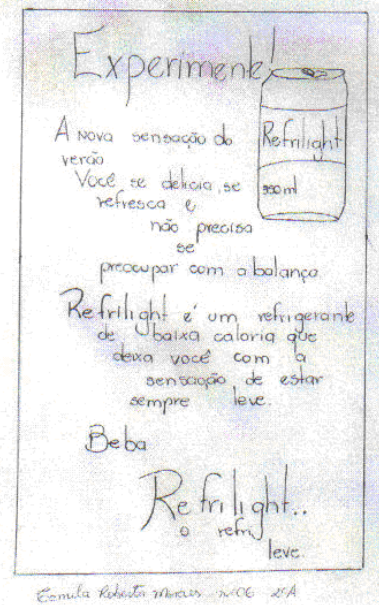 Experimente!
A nova sensação do
verão
Refrilight
350ml
Você se delicia, se
refresca e
não precisa
se
preocupar com a balança
Refrilight é um refrigerante
de baixa caloria que
deixa você com a
sensação de estar
sempre leve.
Beba
Refrilight..
o refri
leve.
Camila Roberta Moraes nº06 2ºA